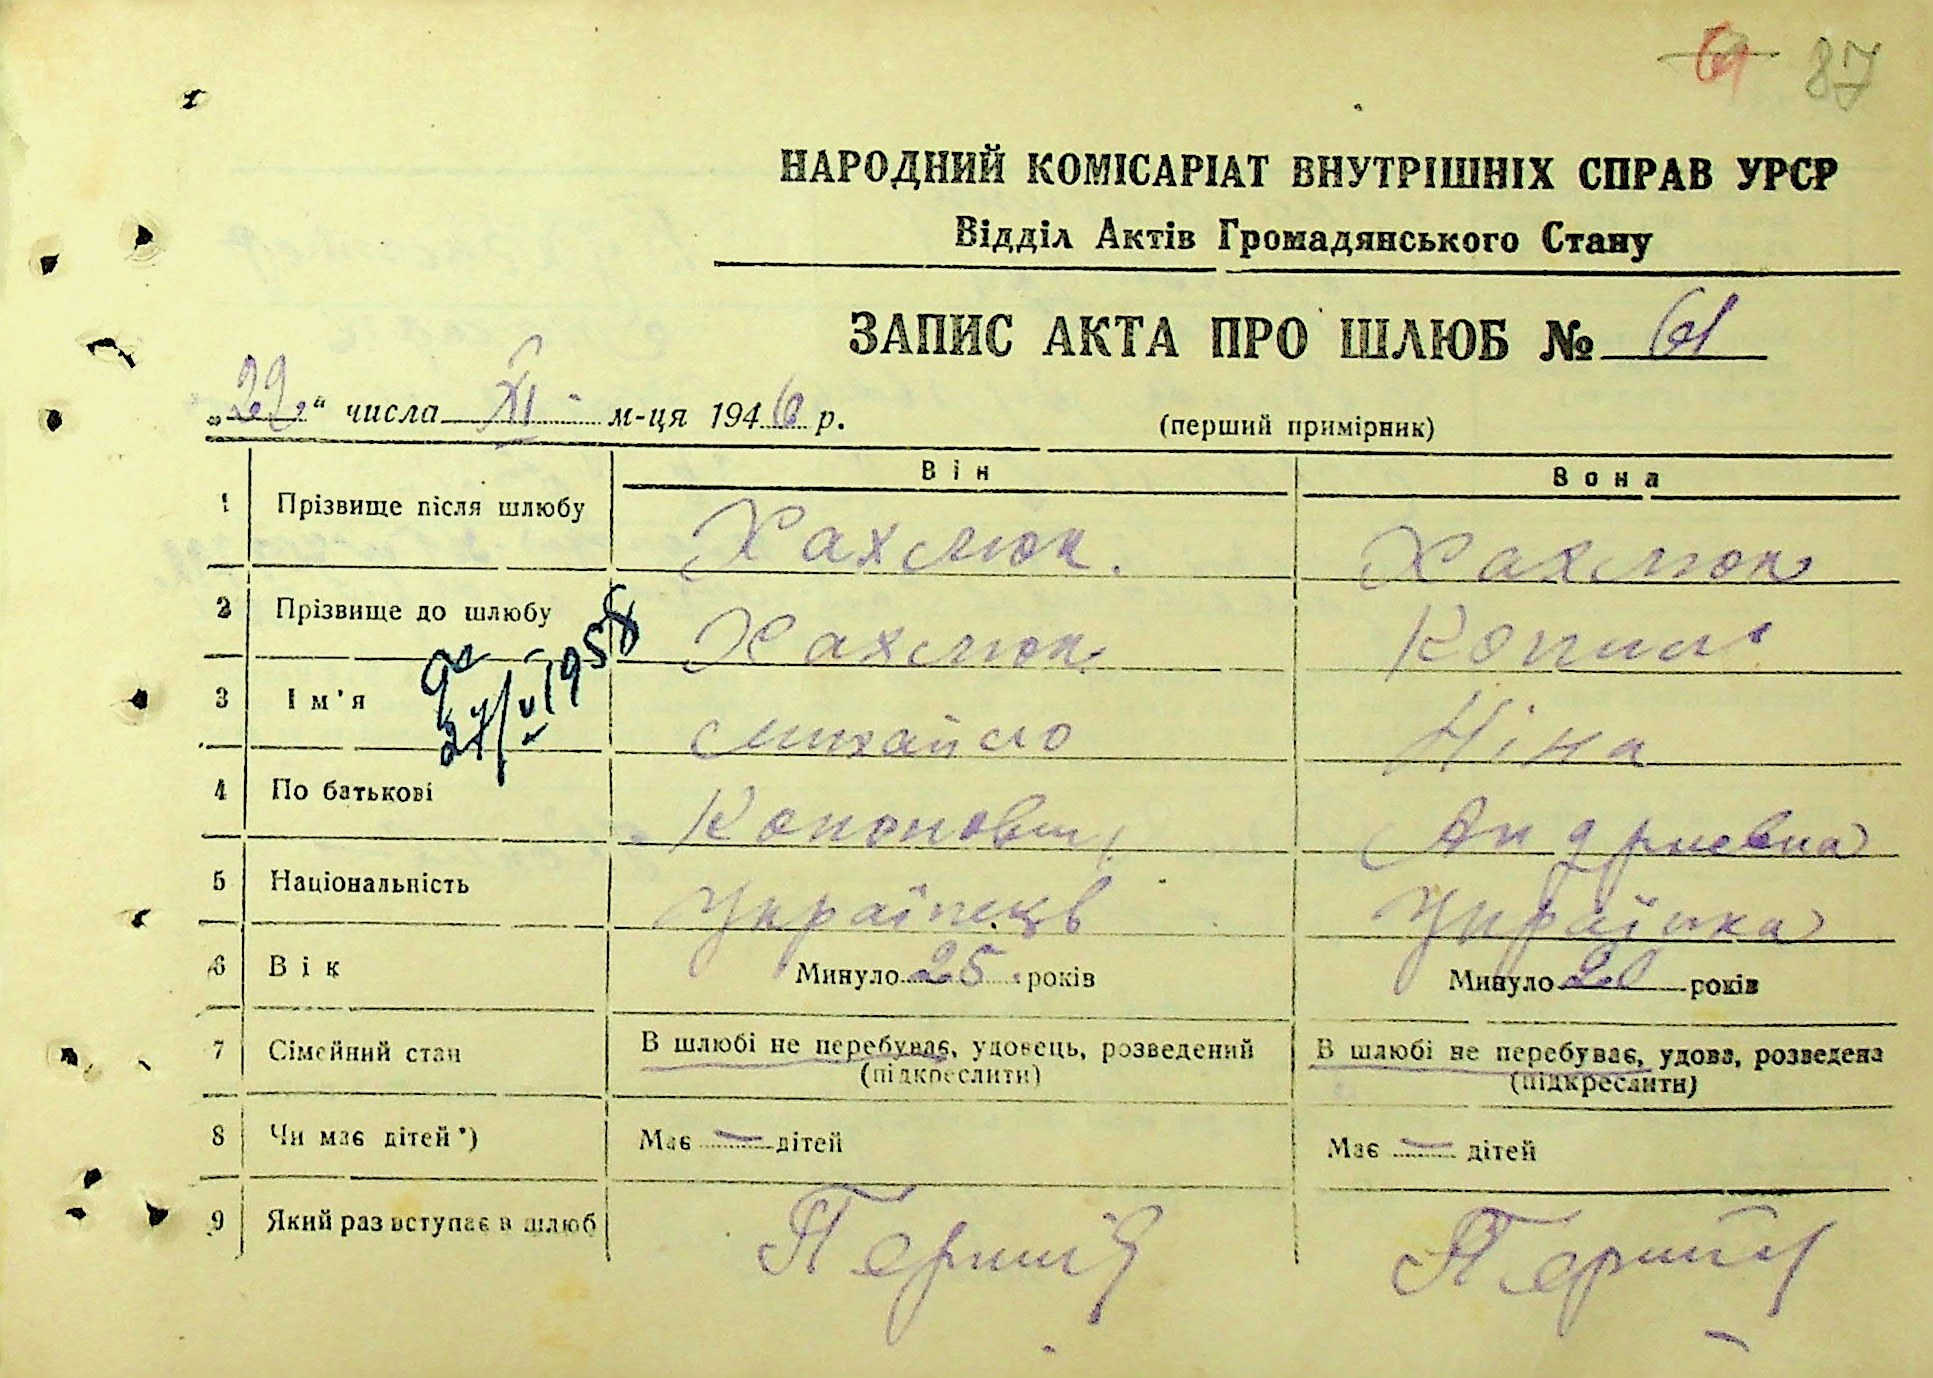 61 87
НАРОДНИЙ КОМІСАРІАТ ВНУТРІШНІХ СПРАВ УРСР
Відділ Актів Громадянського Стану
ЗАПИС АКТА ПРО ШЛЮБ № 61
„22“ числа XI м-ця 1946 р.
(перший примірник)
Він Вона
1 Прізвище після шлюбу Хахлюк. Хахлюк
2 Прізвище до шлюбу Хахлюк Копил
1958
3 Ім'я Михайло Ніна
4 По батькові Кононович Андриевна
5 Національність Українець Українка
6 Вік Минуло 25 років Минуло 20 років
7 Сімейний стан В шлюбі не перебуває, удовець, розведений В шлюбі не перебуває, удова, розведена
(підкреслити) (підкреслити)
8 Чи має дітей*) Має — дітей Має — дітей
9 Який раз вступає в шлюб Перший Перший